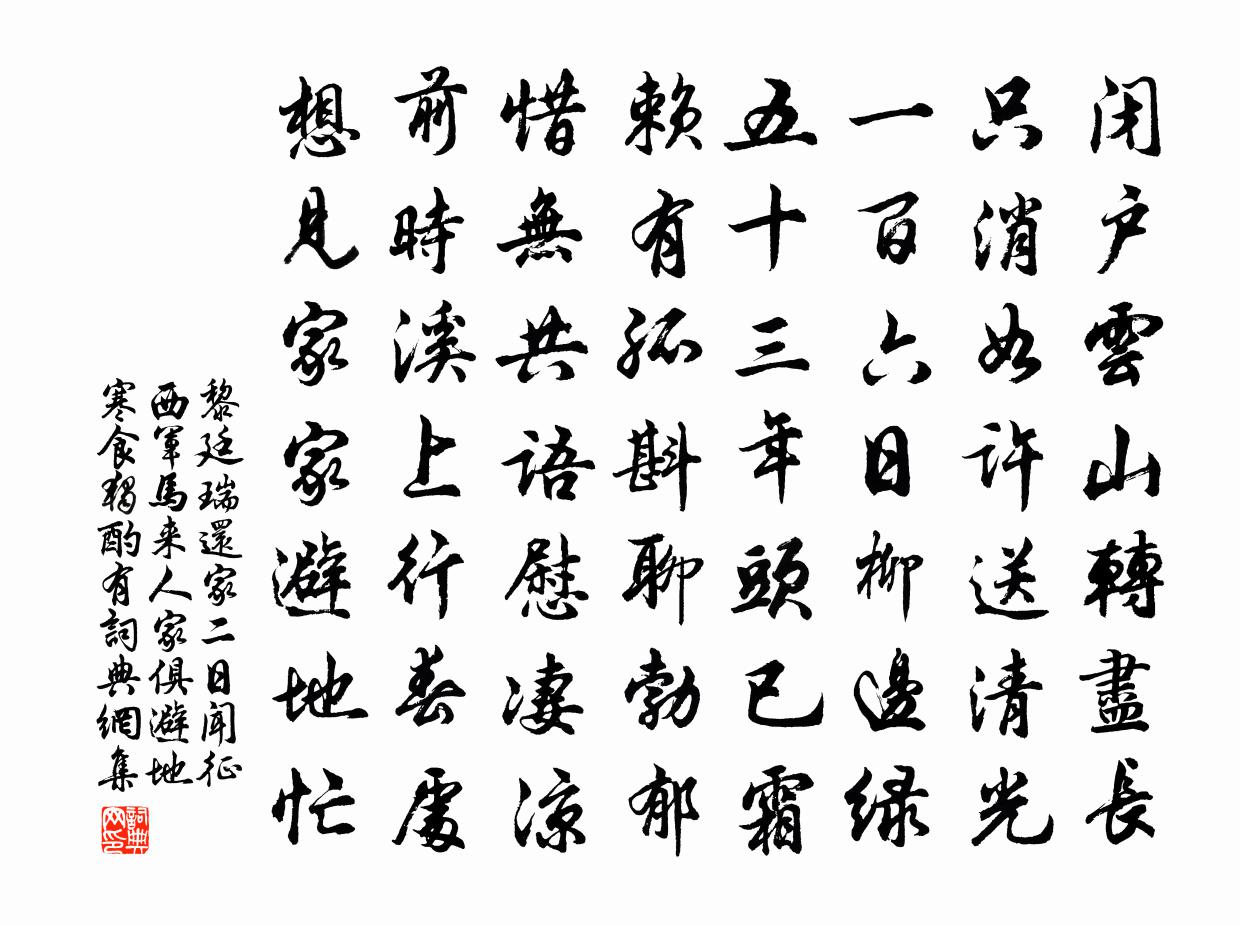 闭户雲山轉盡長
只消如許送清光
一百六日柳邊绿
五十三年頭已霜
赖有孤斟聊勃郁
惜無共語慰凄涼
前時溪上行春處
想見家家避地忙
黎廷瑞還家二日闻征
西軍馬来人家俱避地
寒食獨酌有詞典網集
詞典
网印